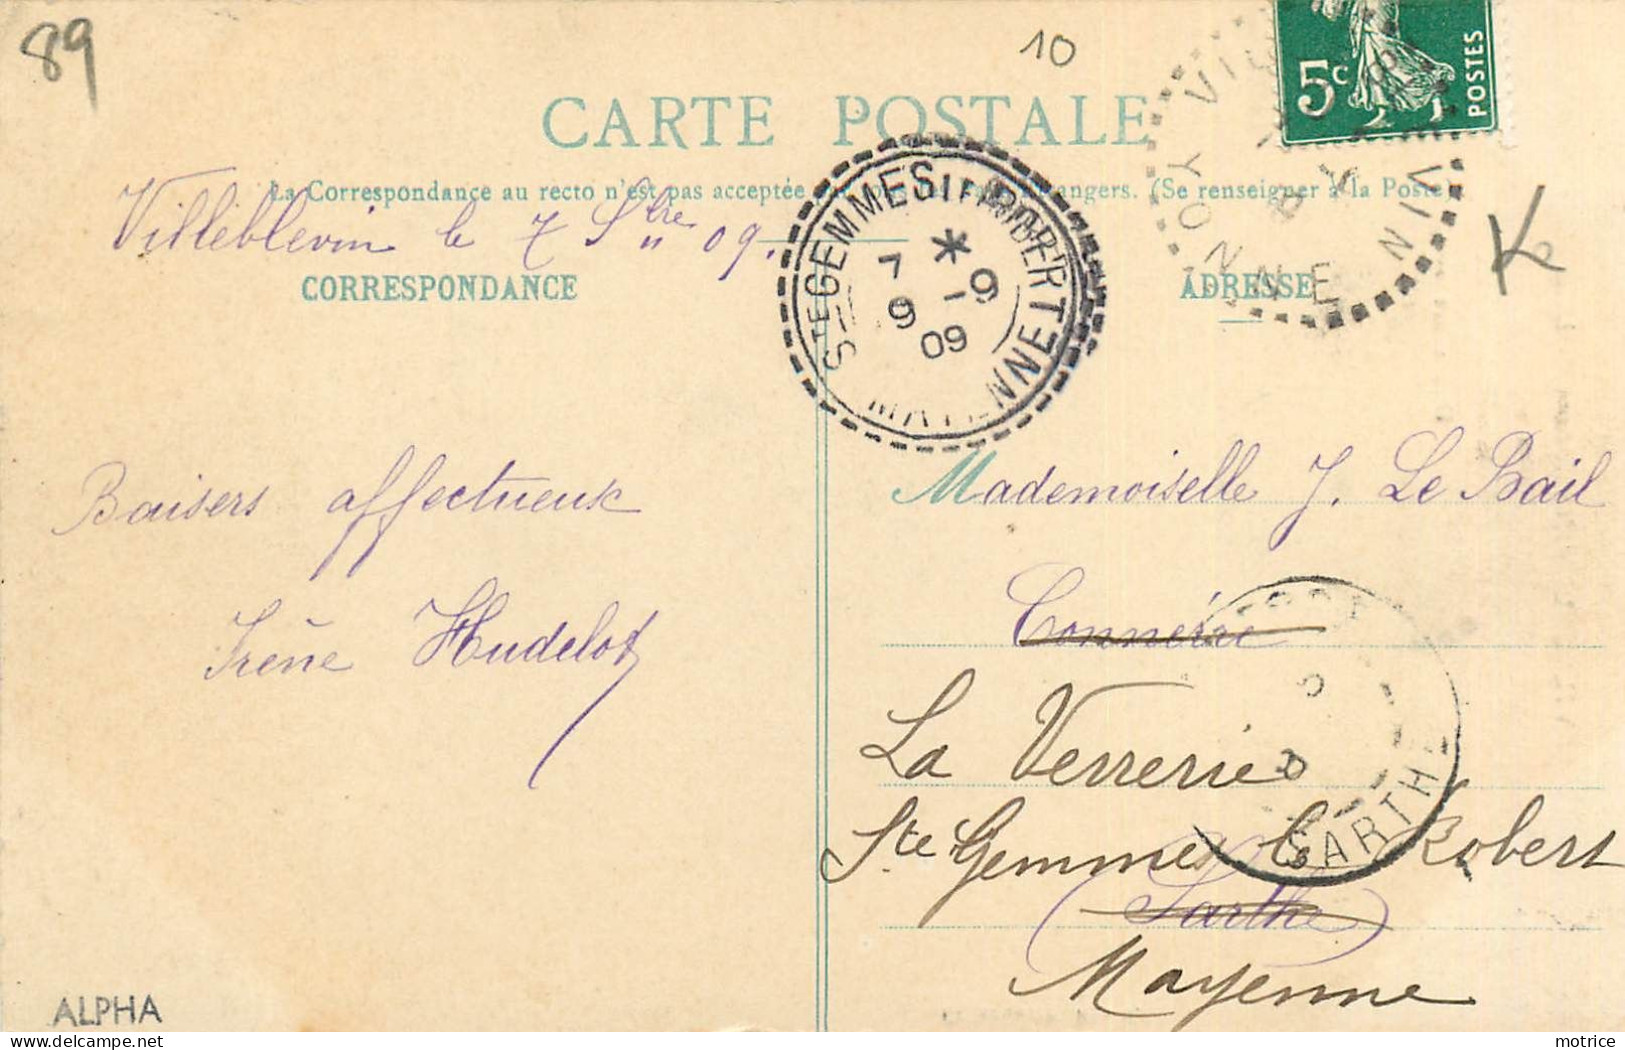 89
10
5c POSTES
CARTE POSTALE
La Correspondance au recto n'est pas acceptée angers. (Se renseigner à la Poste)
Villeblevin le 7 Sbre 09.
CORRESPONDANCE
ADRESSE
STE GEMMES LE ROBERT
7 * 9
9 09
MAYENNE
YONNE
K
Baisers affectueux
Irène Hudelot
Mademoiselle J. Le Bail
Connérré
La Verrerie
Ste Gemmes le Robert
(Sarthe)
Mayenne
SARTHE
ALPHA
Delcampe.net
motrice